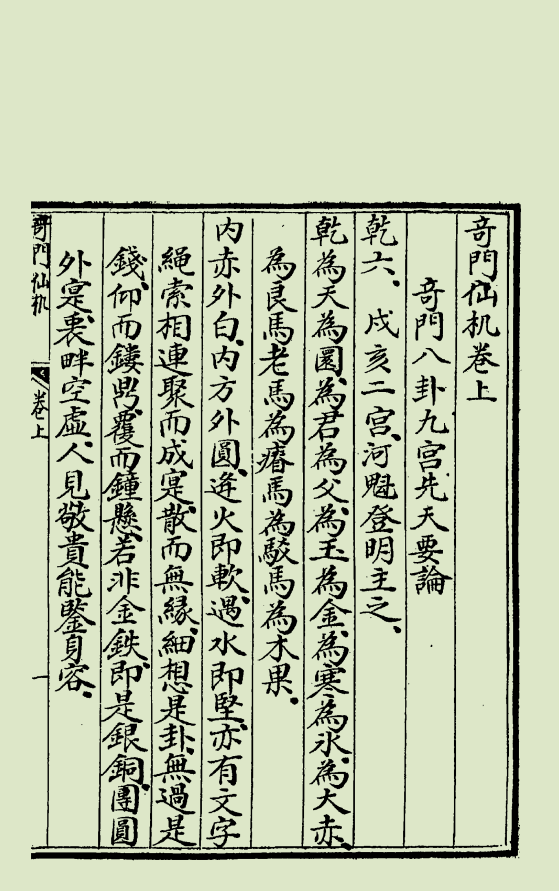 奇門仙机卷上
奇門八卦九宫先天要論
乾六、戌亥二宫、河魁登明主之、
乾為天、為圜、為君、為父、為玉、為金、為寒、為氷、為大赤、
為良馬、老馬、為瘠馬、為駁馬、為木果、
内赤外白、内方外圓、逄火即軟、遇水即堅、亦有文字
繩索相連、聚而成寔、散而無緣、細想是卦、無過是
錢、仰而鏤、覆而鐘懸、若非金鉄、即是銀銅、團圓
外寔、裏畔空虚、人見敬貴、能鑒身容、
奇門仙机 卷上 一